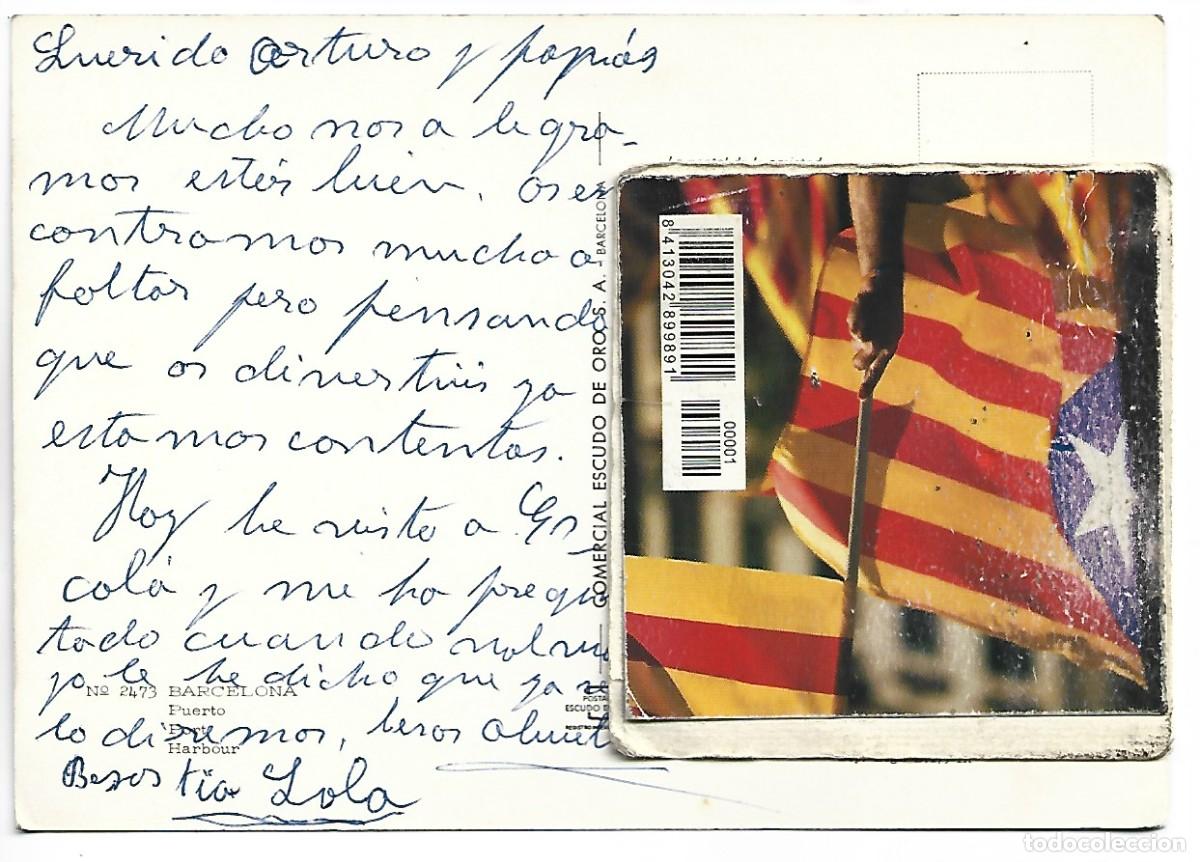 Querido Arturo y papás
Mucho nos alegra-
mos estés bien, os en
contramos mucho a
faltar pero pensando
que os divertiis ya
estamos contentas.
Hoy he visto a
colá y me ha pregun
tado cuando
ya le he dicho que ya
lo diremos, besos
Besos tia Lola
Nº 2473 BARCELONA
Puerto
Port
Harbour
COMERCIAL ESCUDO DE ORO, S. A. - BARCELON
POSTA
ESCUDO D
8 413042 899891
00001
todocoleccion